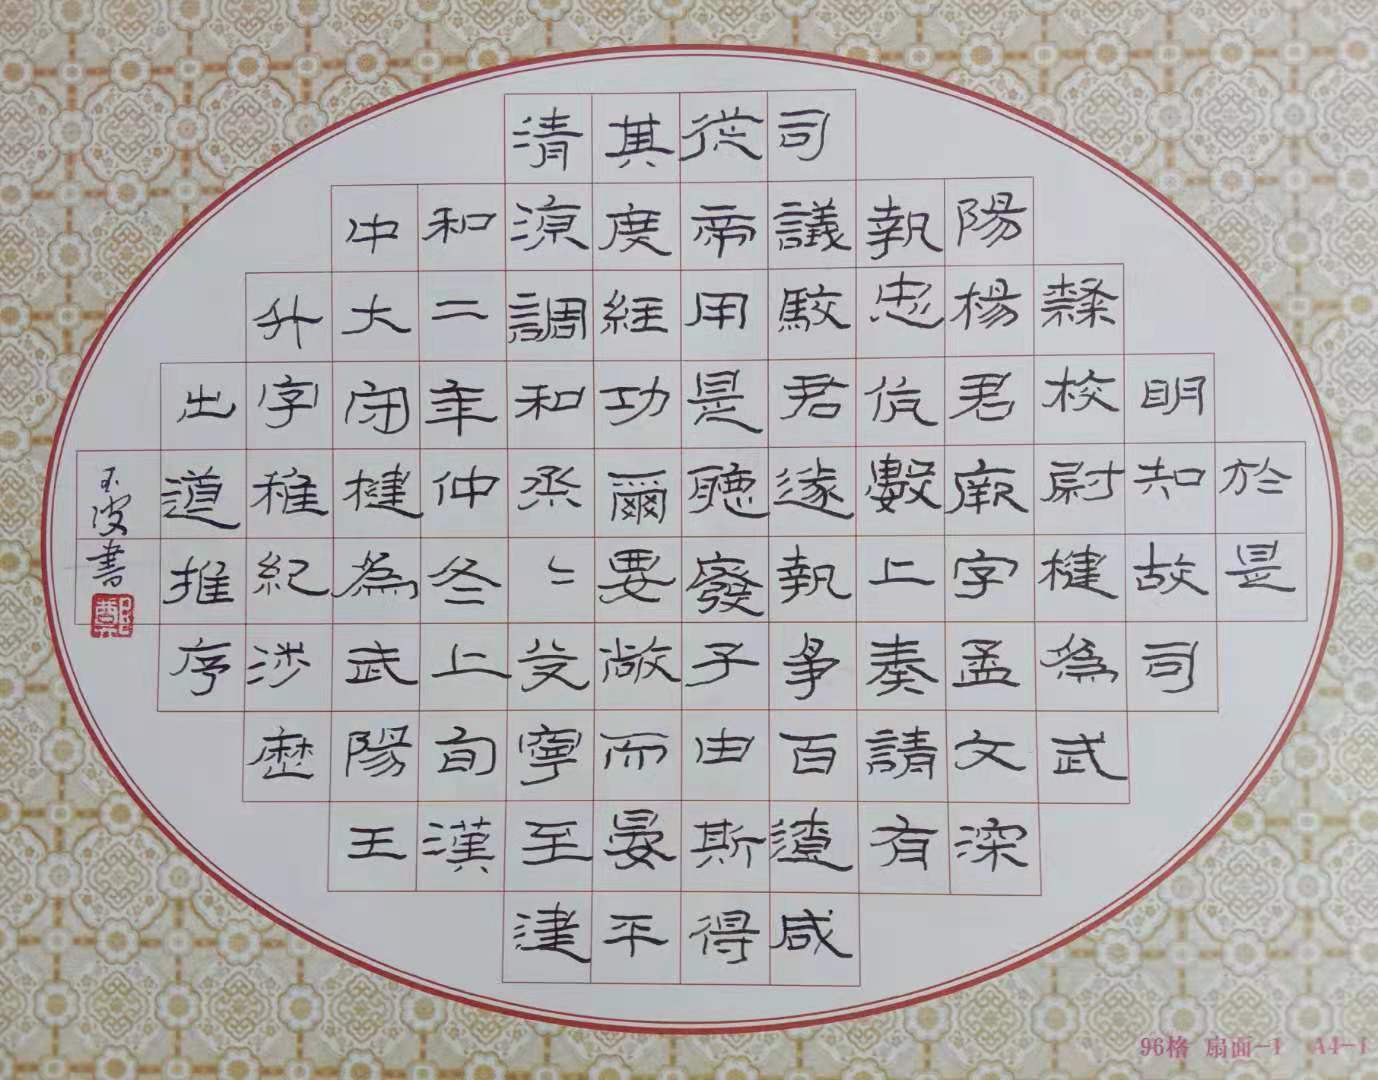 於是
明知故司
隸校尉楗為武
陽楊君厥字孟文深
執忠伉數上奏請有
司議駮君遂執爭百遼咸
從帝用是聽廢子由斯得
其度經功爾要敞而晏平
清涼調和烝〻艾寧至建
和二年仲冬上旬漢
中大守楗為武陽王
升字稚紀涉歷
出道推序
玉波書
鄭
96格 扇面-1 A4-1